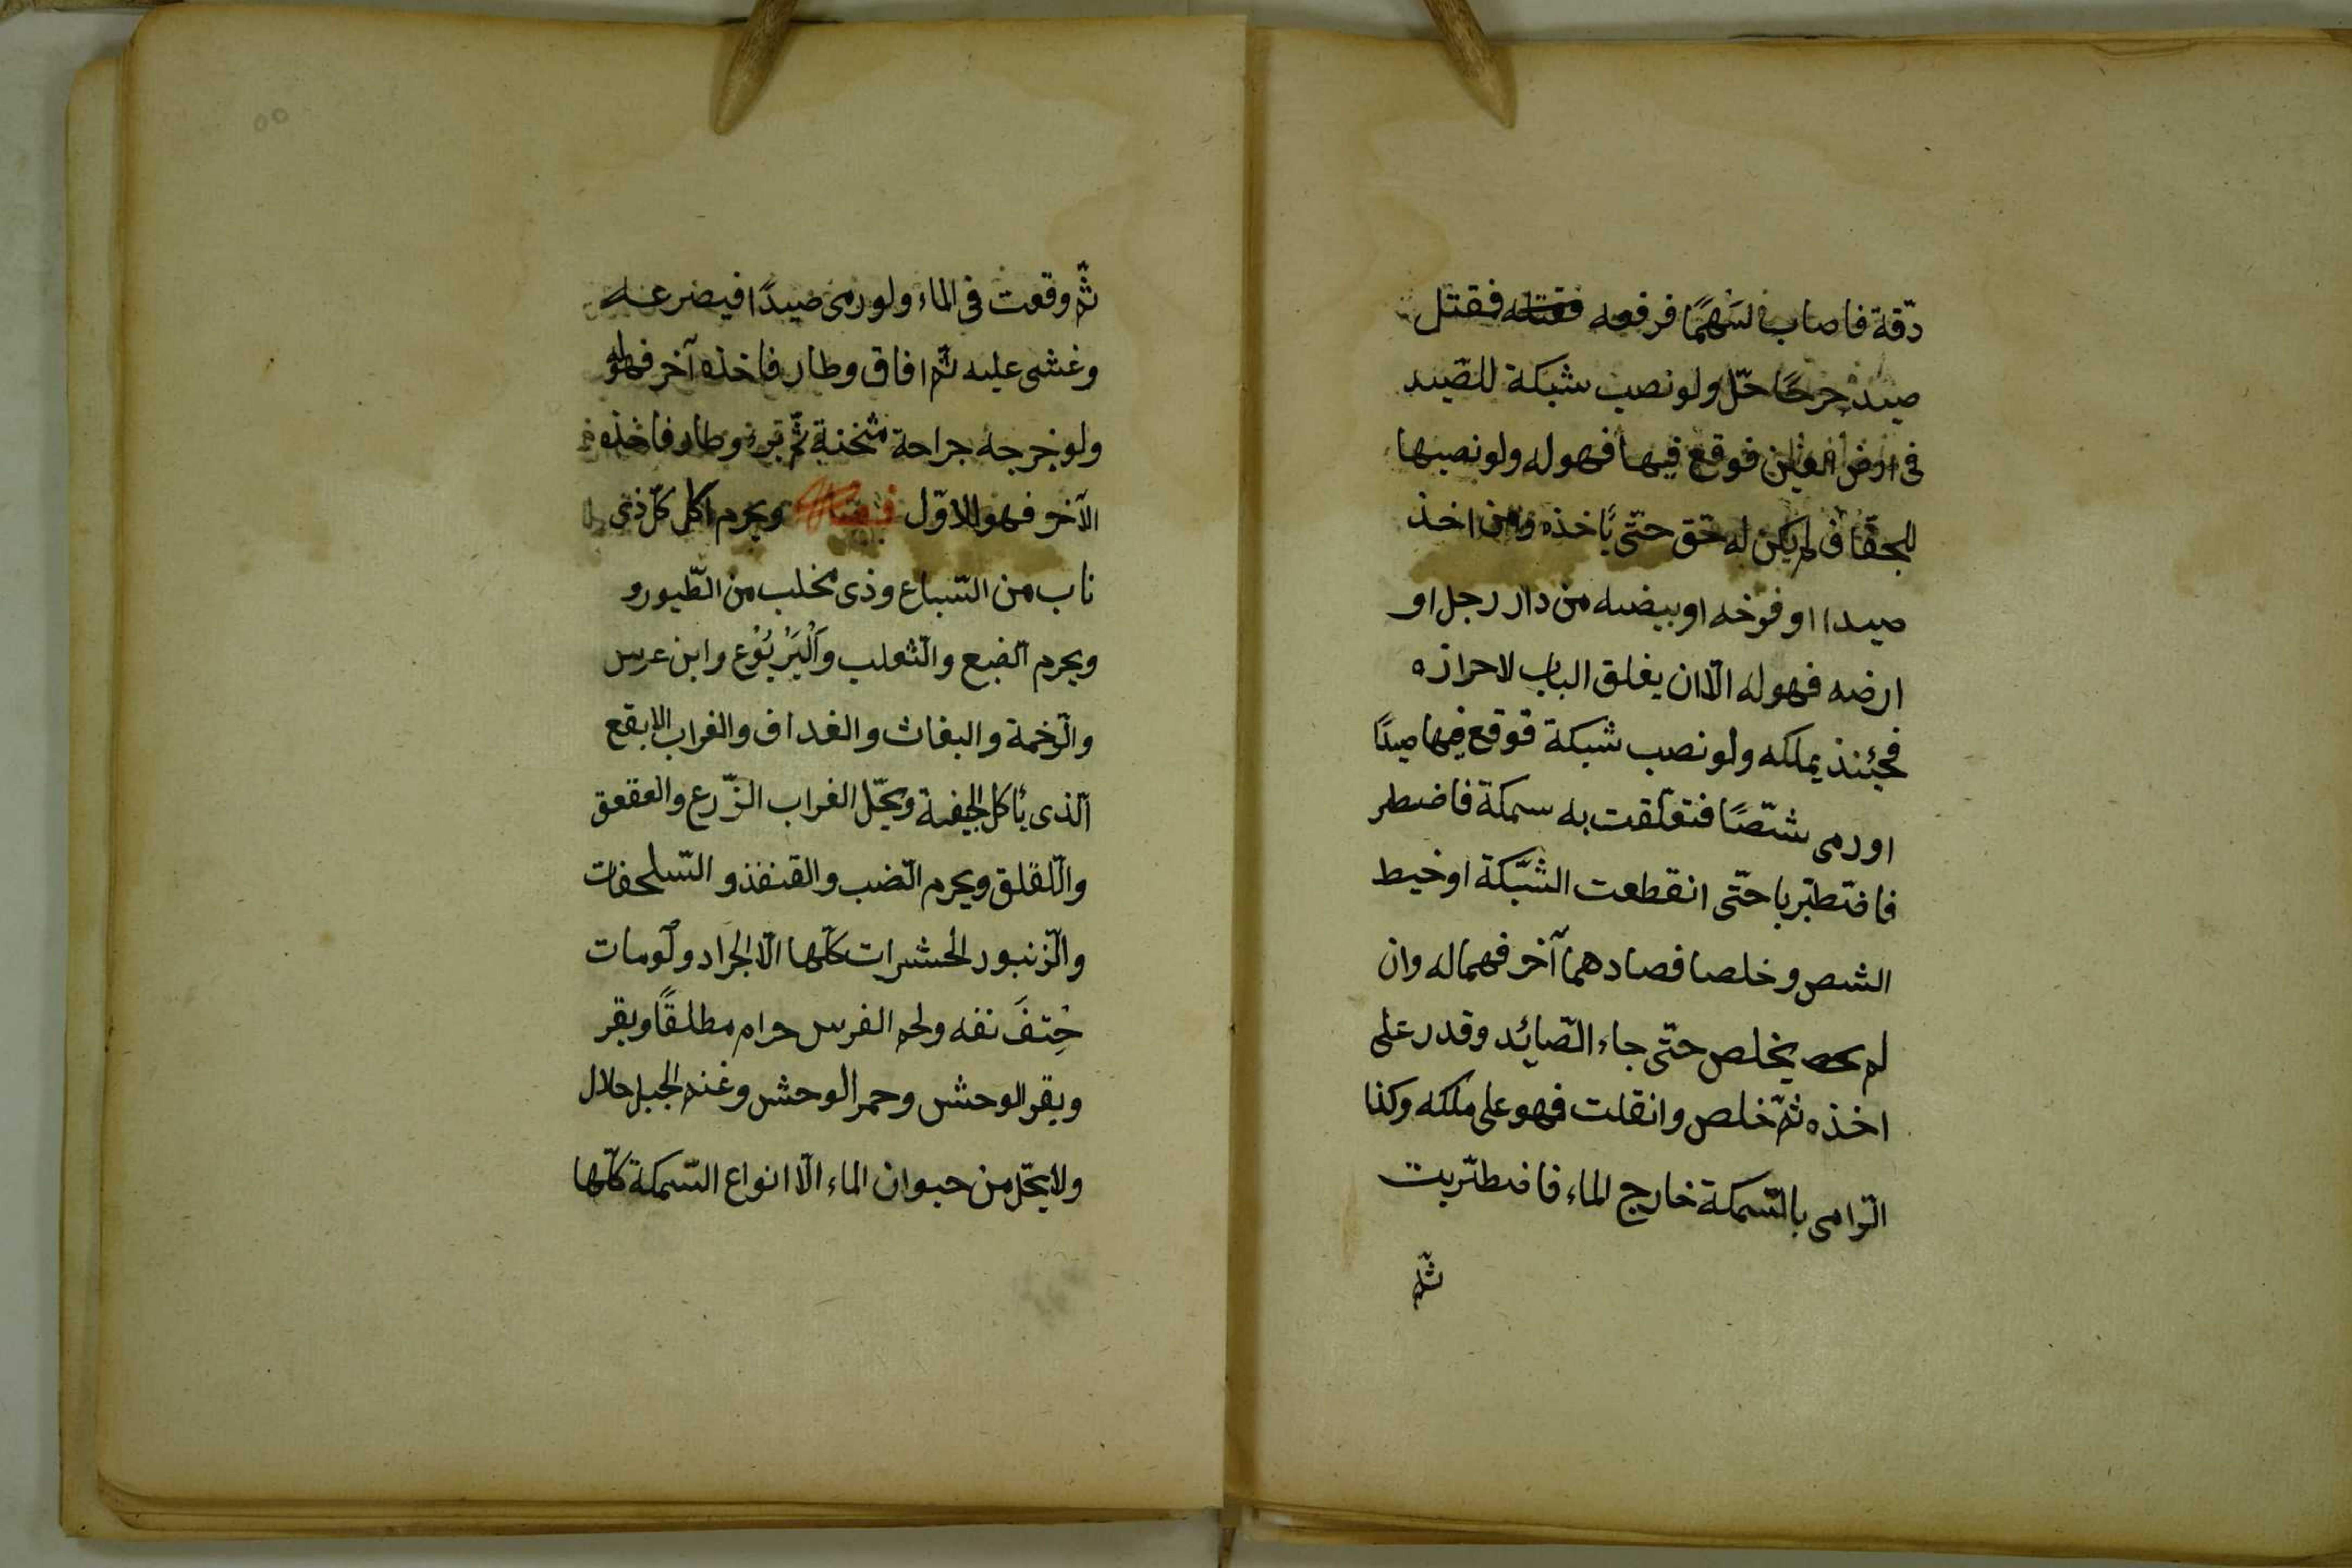 دقّة فاصاب سَهْمًا فرفعه فقتله فقتل
صيد جرحًا حلّ ولو نصب شبكة للصّيد
فى ارض الغير فوقع فيها فهو له ولو نصبها
للجفاف لم يكن له حق حتّى يأخذه ومن اخذ
صيدا او فرخه او بيضه من دار رجل او
ارضه فهو له الّا ان يغلق الباب لاحرازه
فحينئذ يملكه ولو نصب شبكة فوقع فيها صيدًا
او رمى شصًّا فتعلّقت به سمكة فاضطر
فاضطبّربا حتّى انقطعت الشبّكة او خيط
الشص وخلصا فصادهما آخر فهما له وان
لم يخلص حتّى جاء الصّائد وقدر على
اخذه ثمّ خلص وانقلت فهو على ملكه وكذا
الرّامى بالسّمكة خارج الماء فاضطرّبت
ثمّ
ثمّ وقعت فى الماء ولو رمى صيدًا فيضرعه
وغشى عليه ثمّ افاق وطار فاخذه آخر فهو له
ولو جرحه جراحة مثخنة ثمّ برء وطار فاخذه
الآخر فهو للاوّل ويحرم اكل كلّ ذى
ناب من السّباع وذى مخلب من الطّيور و
ويحرم الضبع والثعلب وَالْيَرْبُوْع وابن عرس
والرّخمة والبغاث والغداف والغراب الابقع
الّذى يأكل الجيفة ويحلّ الغراب الزّرع والعقعق
واللّقلق ويحرم الضّب والقنفذ والسّلحفات
والزّنبور الحشرات كلّها الّا الجراد ولو مات
حِتفَ نفه ولحم الفرس حرام مطلقًا وبقر
وبقر الوحش وحمر الوحش وغنم الجبل حلال
ولا يحلّ من حيوان الماء الّا انواع السّمكة كلّها